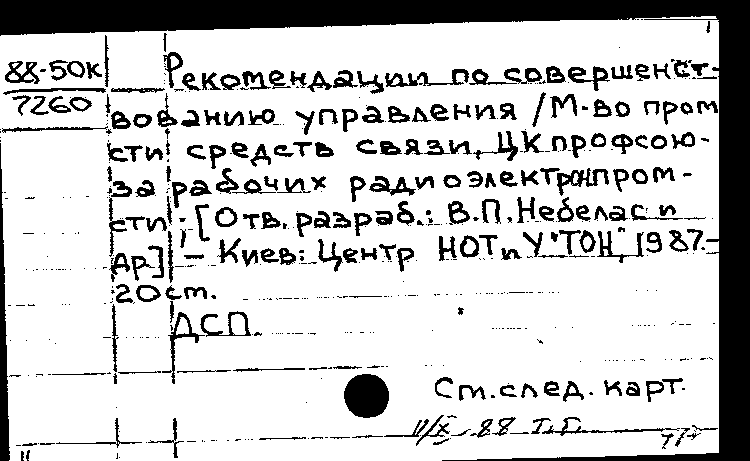 88-50К
7260
Рекомендации по совершенст-
вованию управления /М-во пром
сти средств связи, ЦК профсою-
за рабочих радиоэлектронпром-
сти; [Отв. разраб.: В.П.Небелас и
др.] – Киев: Центр НОТиУ "ТОН", 1987.–
20 ст.
ДСП.
Ст.след. карт.
11/X 88 Т.Г.